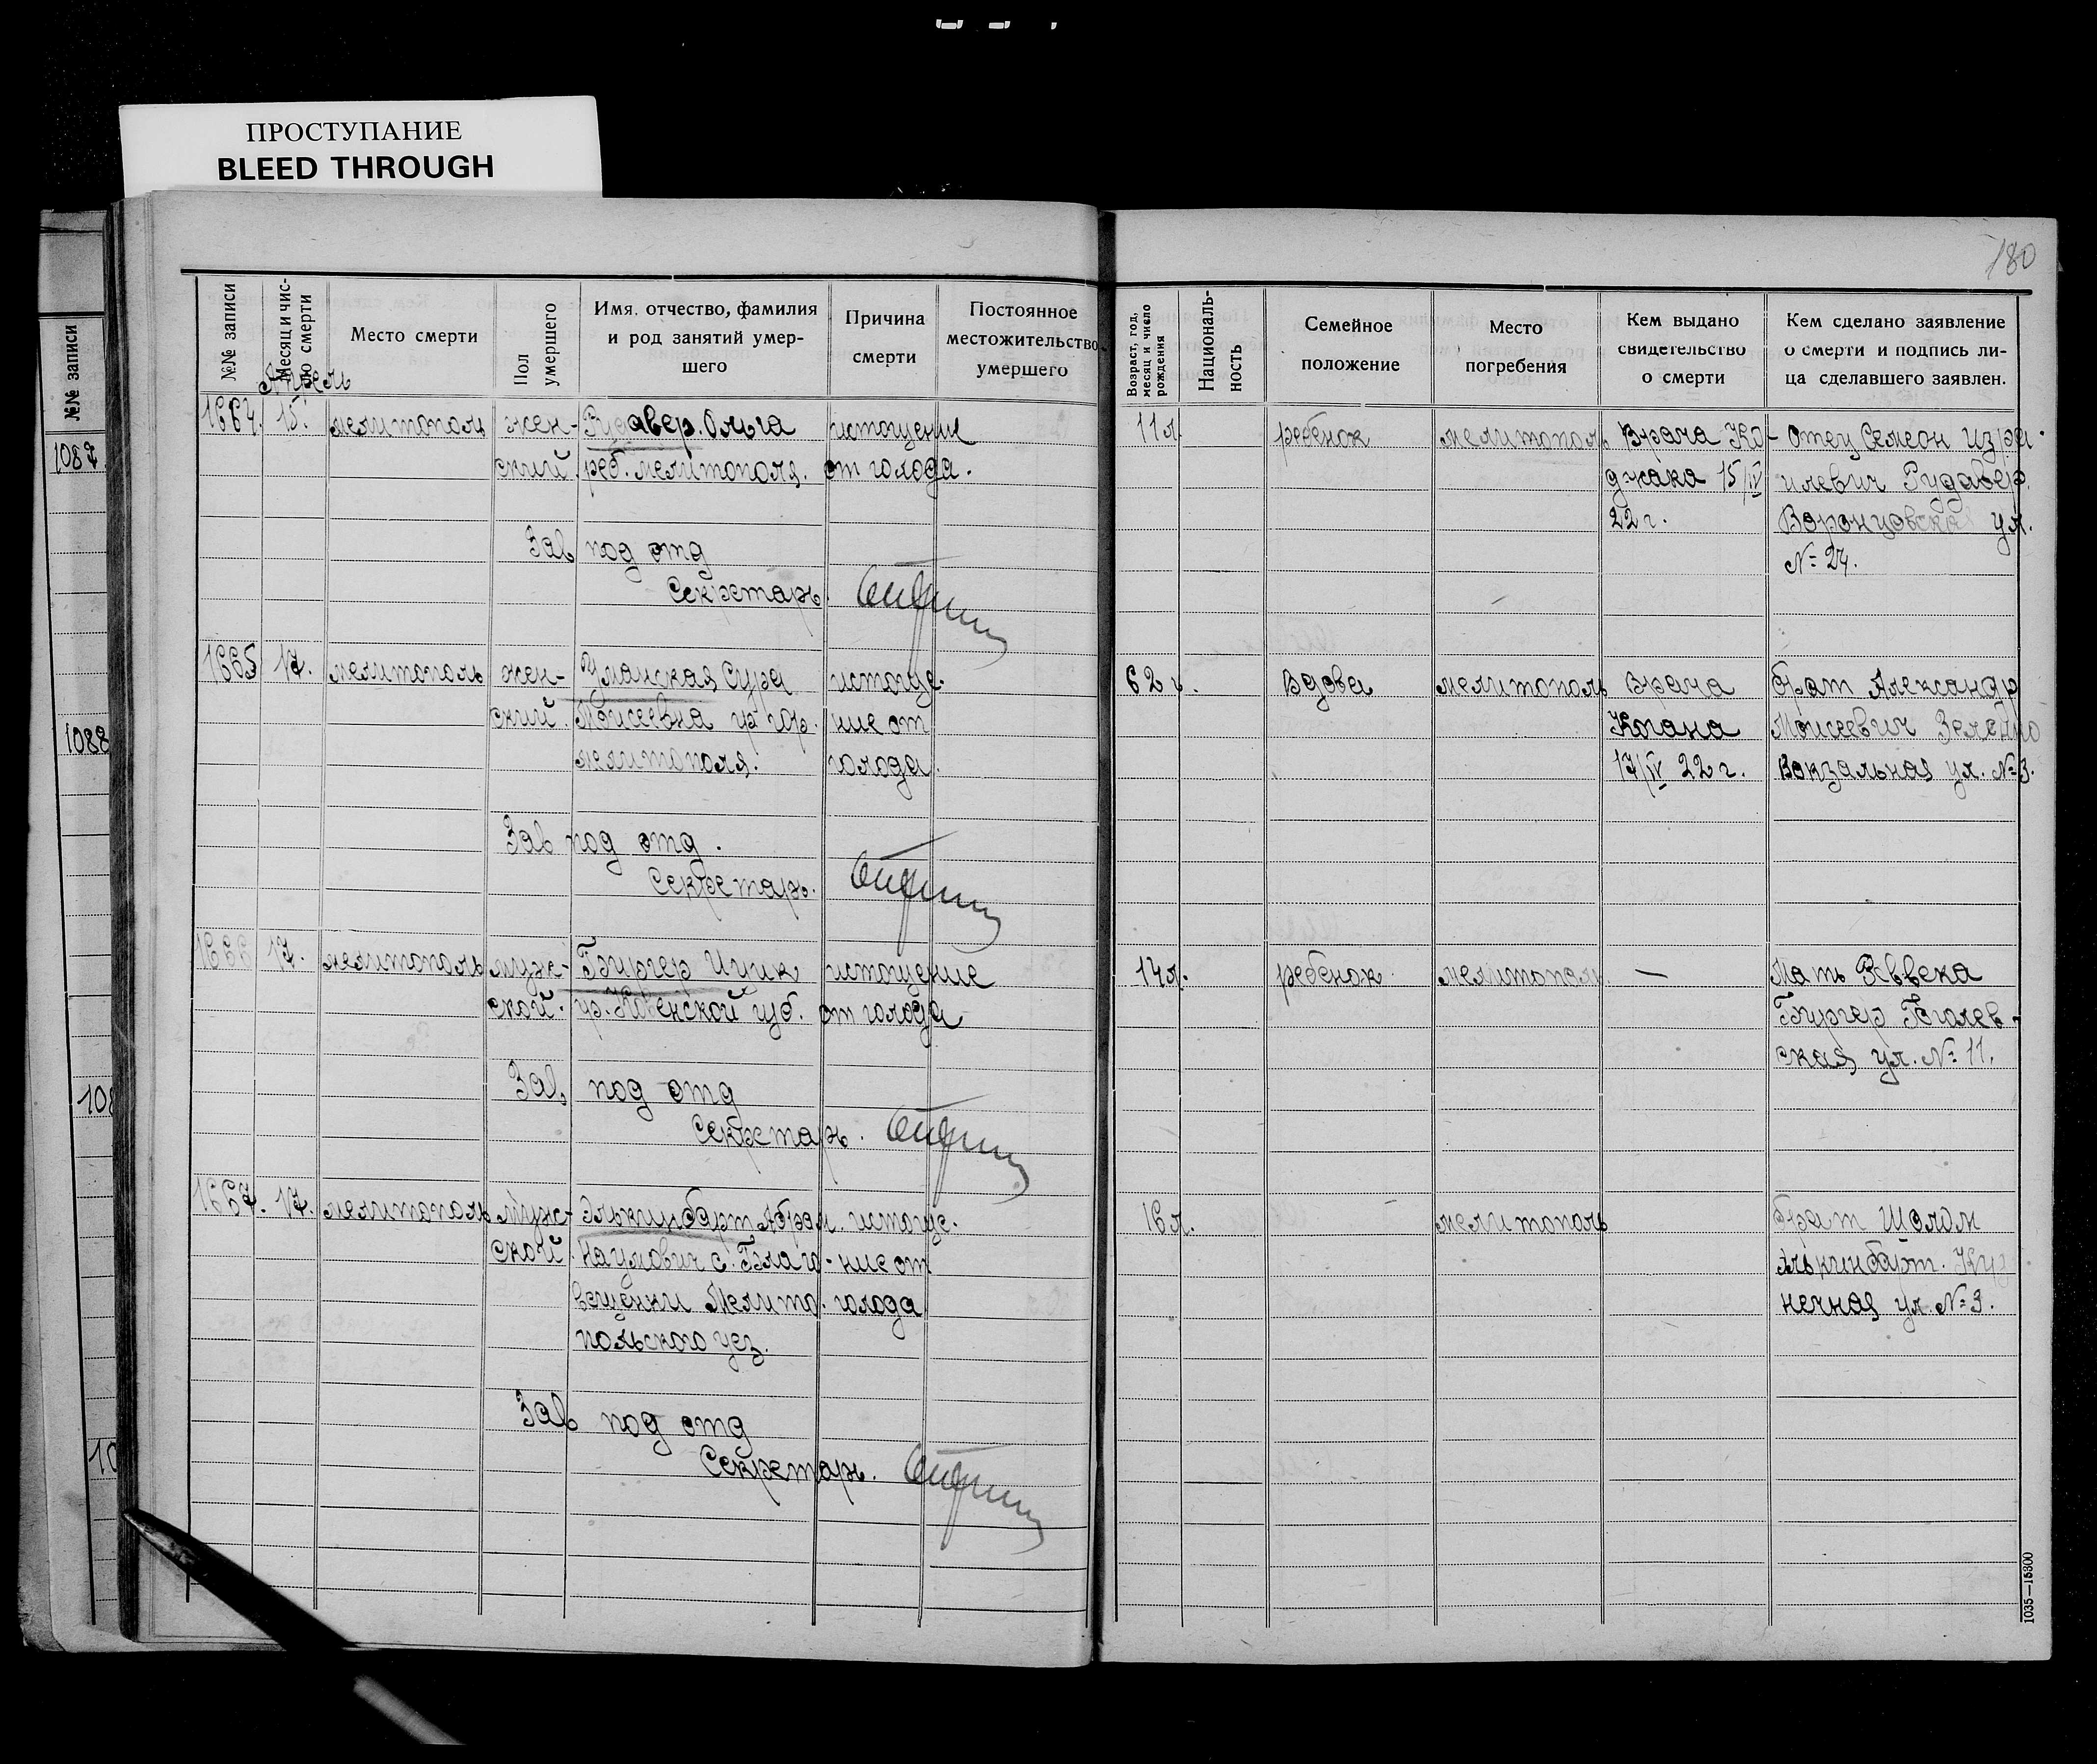 ПРОСТУПАНИЕ
BLEED THROUGH
180
№№ записи
1087
1088
108
10
№№ записи
Месяц и чис-
ло смерти
Место смерти
Пол
умершего
Имя, отчество, фамилия
и род занятий умер-
шего
Причина
смерти
Постоянное
местожительство
умершего
Возраст, год,
месяц и число
рождения
Националь-
ность
Семейное
положение
Место
погребения
Кем выдано
свидетельство
о смерти
Кем сделано заявление
о смерти и подпись ли-
ца сделавшего заявлен.
Апрель
1664. 15. мелитополь жен- Рудавер. Ольга истощение 11л. ребенок мелитополь Врача Ко- отец Семеон Изра-
ский. реб. мелитополя. от голода. джака 15/IV илевич Рудавер.
22 г. Воронцовская ул.
№ 24.
Зав под отд
Секретарь.
1665 17. мелитополь жен- Уманская Сура истоще- 62 г. Вдова мелитополь Врача брат Александр
ский. Моисеевна гр. гор. ние от Когана Моисеевич
мелитополя. голода. 17/IV 22 г. Вокзальная ул. №3.
Зав под отд.
Секретарь.
1666 17. мелитополь муж- Бургер Ицик истощение 14л. ребенок мелитополь — Мать Ревека
ской. гр. Ковенской губ. от голода Бургер Гоголев-
ская ул. № 11.
Зав под отд
Секретарь.
1667. 17. мелитополь муж- Элькинбарт Абрам истоще- 16л. мелитополь брат Шолом
ской. Наумович с. Благо- ние от Элькинбарт. Куз
вещенки Мелито- голода нечная ул. №3.
польского уез.
Зав под отд
Секретарь.
1035—15300